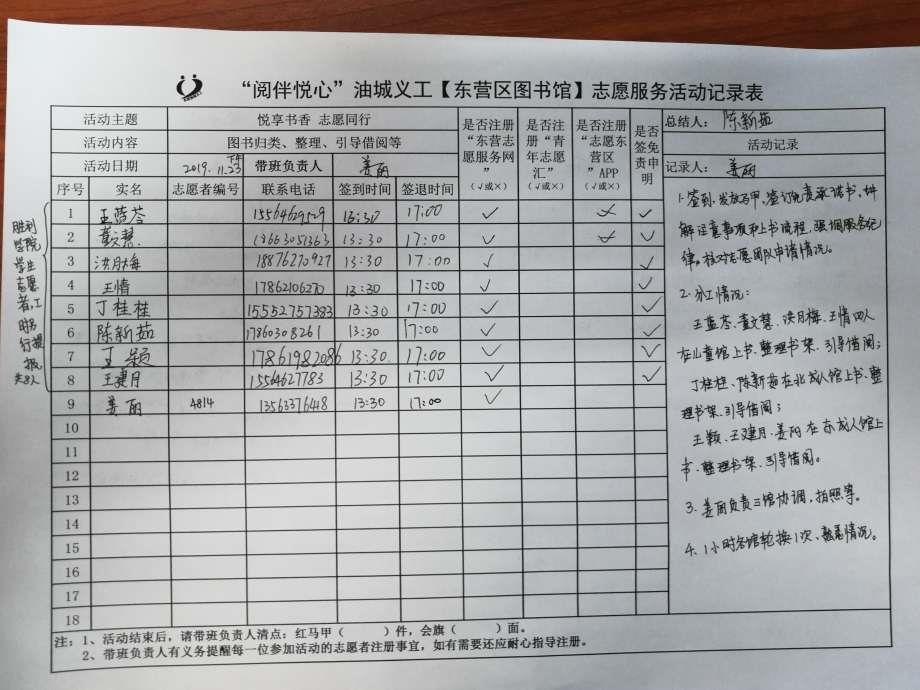 “阅伴悦心”油城义工【东营区图书馆】志愿服务活动记录表
活动主题 悦享书香 志愿同行
活动内容 图书归类、整理、引导借阅等
活动日期 2019.11.23 下午 带班负责人 姜丽
是否注册“东营志愿服务网”（√或×）
是否注册“青年志愿汇”（√或×）
是否注册“志愿东营区”APP（√或×）
是否签免责申明
总结人： 陈新茹
活动记录
记录人： 姜丽
序号 实名 志愿者编号 联系电话 签到时间 签退时间
1 王蓝苓 15564629529 13:30 17:00 √ √ √
2 黄文慧 13:30 17:00 √ √ √
3 洪月梅 18876270927 13:30 17:00 √ √
4 王情 17862106270 13:30 17:00 √ √
5 丁桂桂 15552757383 13:30 17:00 √ √
6 陈新茹 17860308261 13:30 17:00 √ √
7 王颖 17861982086 13:30 17:00 √ √
8 王建月 15564627783 13:30 17:00 √ √
9 姜丽 4814 13563376418 13:30 17:00 √
10
11
12
13
14
15
16
17
18
胜利学院学生志愿者,工时另行提报,共8人
1.签到,发放马甲,签订免责承诺书,讲
解注意事项和上书流程,强调服务纪
律。核对志愿团队申请情况。
2.分工情况:
王蓝苓、黄文慧、洪月梅、王情四人
在儿童馆上书、整理书架、引导借阅;
丁桂桂、陈新茹在北成人馆上书、整
理书架、引导借阅;
王颖、王建月、姜丽在东成人馆上
书、整理书架、引导借阅。
3.姜丽负责三馆协调,拍照等。
4.1小时各馆轮换1次、熟悉情况。
注：1、活动结束后，请带班负责人清点：红马甲（ ）件，会旗（ ）面。
2、带班负责人有义务提醒每一位参加活动的志愿者注册事宜，如有需要还应耐心指导注册。